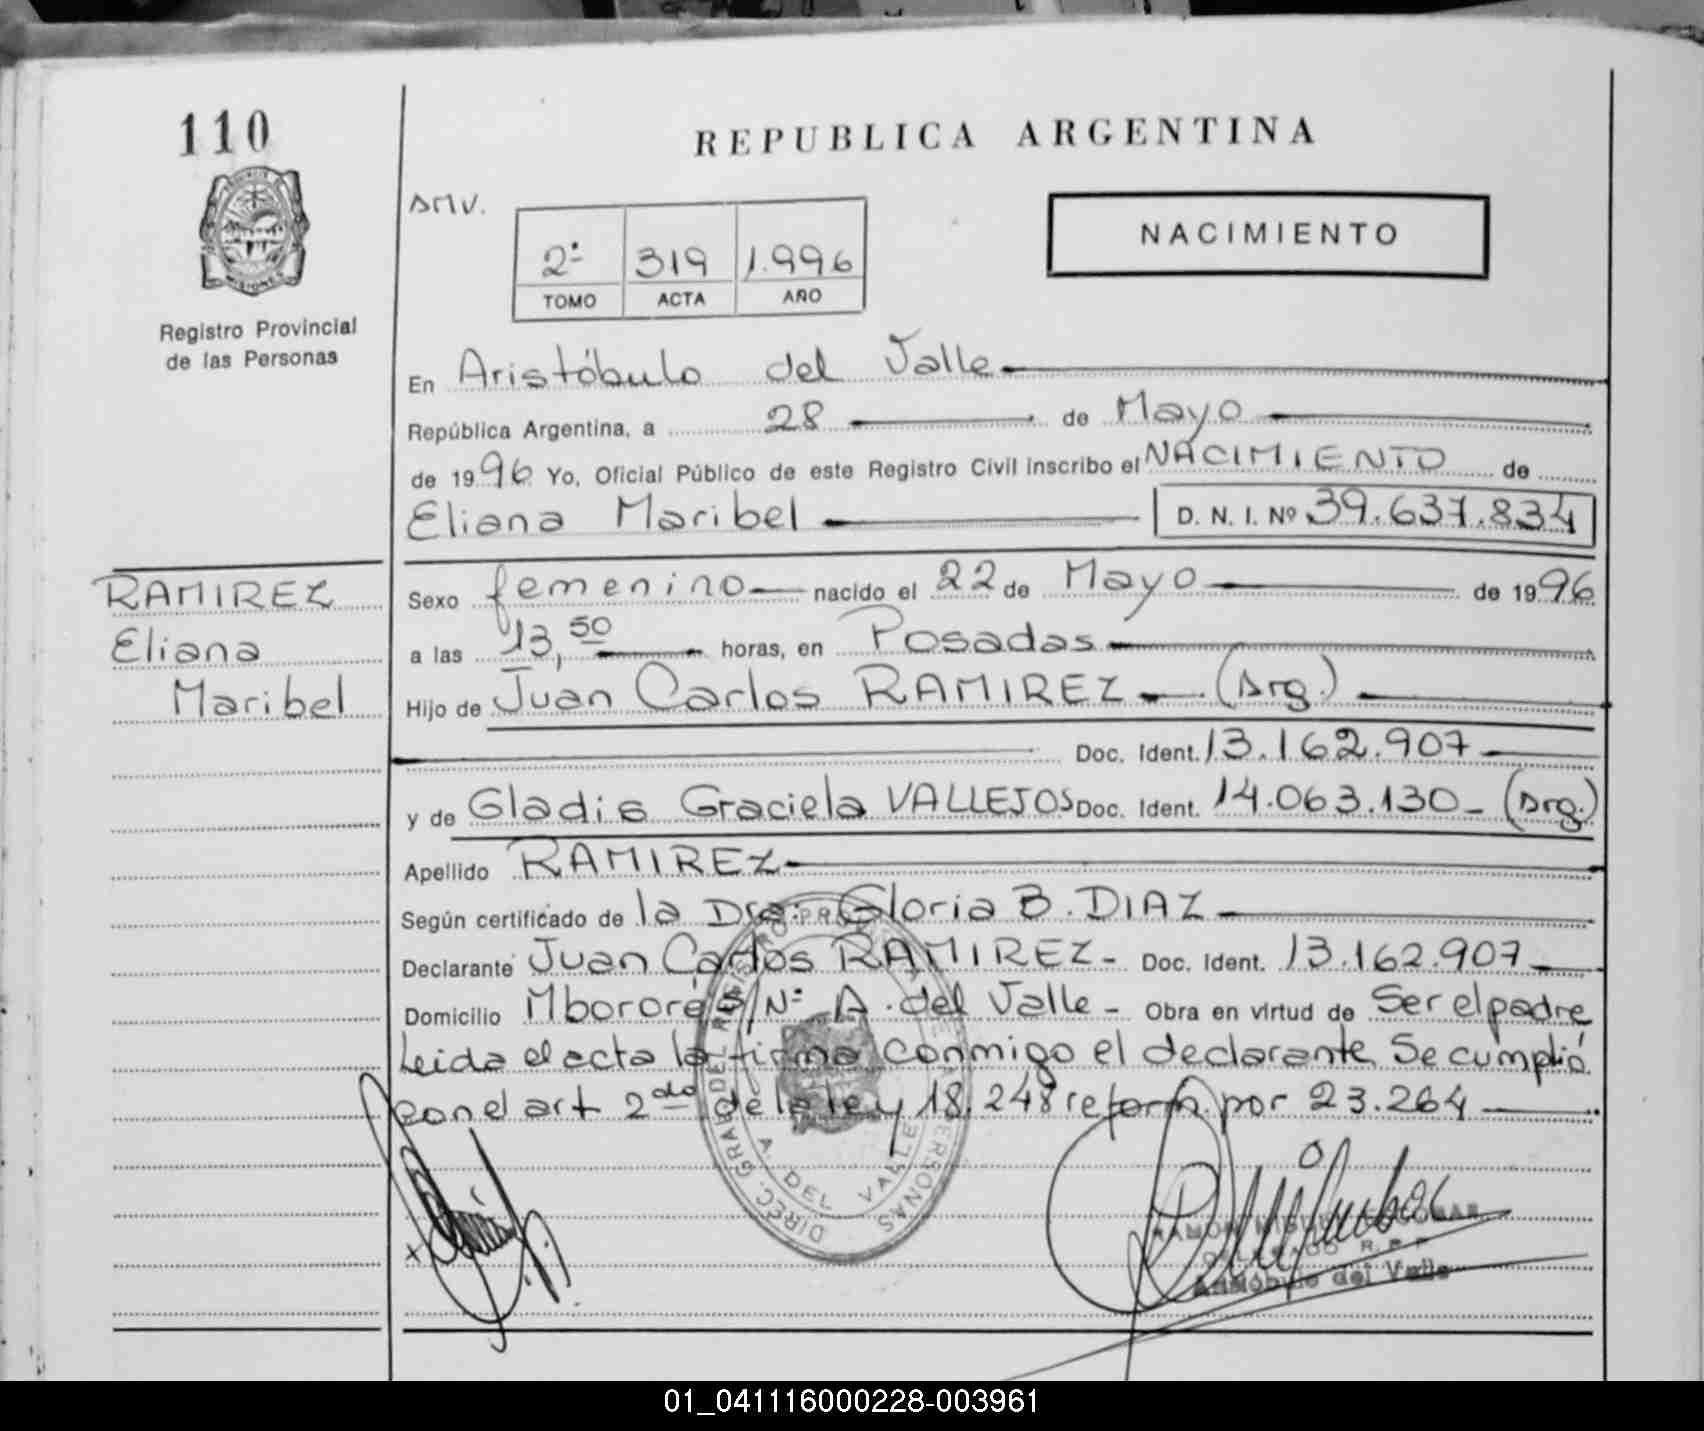 110
REPUBLICA ARGENTINA
DMV.
2º 319 1.996
TOMO ACTA AÑO
NACIMIENTO
MISIONES
Registro Provincial
de las Personas
En Aristóbulo del Valle
República Argentina, a 28 de Mayo
de 1996 Yo, Oficial Público de este Registro Civil inscribo el NACIMIENTO de
Eliana Maribel D. N. I. Nº 39.637.834
RAMIREZ
Eliana
Maribel
Sexo femenino nacido el 22 de Mayo de 1996
a las 13,50 horas, en Posadas
Hijo de Juan Carlos RAMIREZ (Arg.)
Doc. Ident. 13.162.907
y de Gladis Graciela VALLEJOS Doc. Ident. 14.063.130 - (Arg.)
Apellido RAMIREZ
Según certificado de la Dra. Gloria B. DIAZ
Declarante Juan Carlos RAMIREZ - Doc. Ident. 13.162.907
Domicilio Mbororé S/Nº A. del Valle - Obra en virtud de Ser el padre
Leida el acta la firma conmigo el declarante. Se cumplió
con el art 2do de la ley 18.248 reform por 23.264
DIREC. GRAL. DEL REGISTRO PERSONAS
A. DEL VALLE
RAMON
DELEGADO R. P. P.
Aristóbulo del Valle
01_041116000228-003961